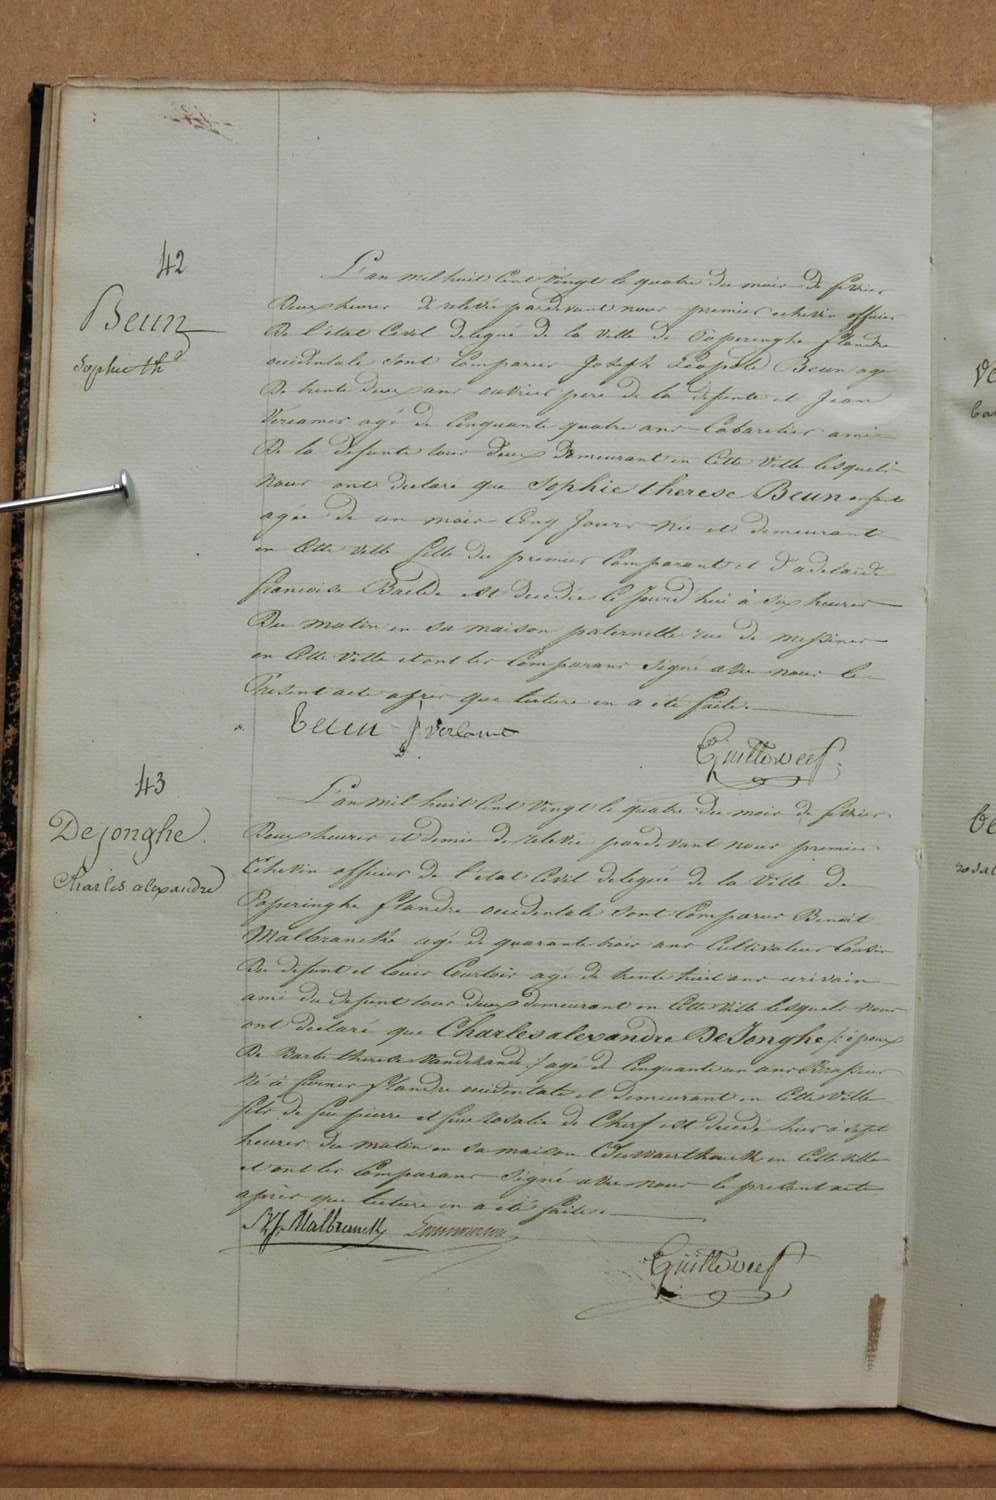 42
Beun
Sophie th.
L'an mil huit Cent Vingt le quatre du mois de fevrier
Deux heures de relevée pardevant nous premier echevin officier
De l'état Civil delegué de la ville de Poperinghe flandre
occidentale sont Comparus Joseph Léopold Beun agé
De trente deux ans ouvrier pere de la defunte et Jean
agé de Cinquante quatre ans Cabaretier ami
De la defunte tous deux Demeurant en Cette Ville lesquels
Nous ont declaré que Sophie therese Beun enfant
agée de un mois Cinq Jours Née et demeurant
en Cette ville fille du premier Comparant et d'adelaïde
francoise Baelde est decedée le Jourd'hui à six heures
Du matin en sa maison paternelle rue de messines
en Cette Ville et ont les Comparans Signé avec nous le
Present acte apres que lecture en a été faite.
beun
Guilloweef
43
De jonghe
Charles alexandre
L'an mil huit Cent Vingt le quatre du mois de fevrier
Deux heures et demie de relevée pardevant nous premier
Echevin officier de l'état Civil delegué de la Ville de
Poperinghe flandre occidentale sont Comparus Benoit
Malbrancke agé de quarante trois ans Cultivateur Cousin
Du defunt et Louis Courtois agé de trente huit ans ecrivain
ami du defunt tous deux demeurant en Cette Ville lesquels nous
ont declaré que Charles alexandre De Jonghe /: epoux
De Barbe therese :/ agé de Cinquante un ans Brasseur
Né à furnes flandre occidentale et demeurant en Cette Ville
fils de feu pierre et feue rosalie de Cherf est decedé hier à sept
heures du matin en sa maison en Cette Ville
et ont les Comparans Signé avec nous le present acte
après que lecture en a été faite.
Malbranck
Guilloweef